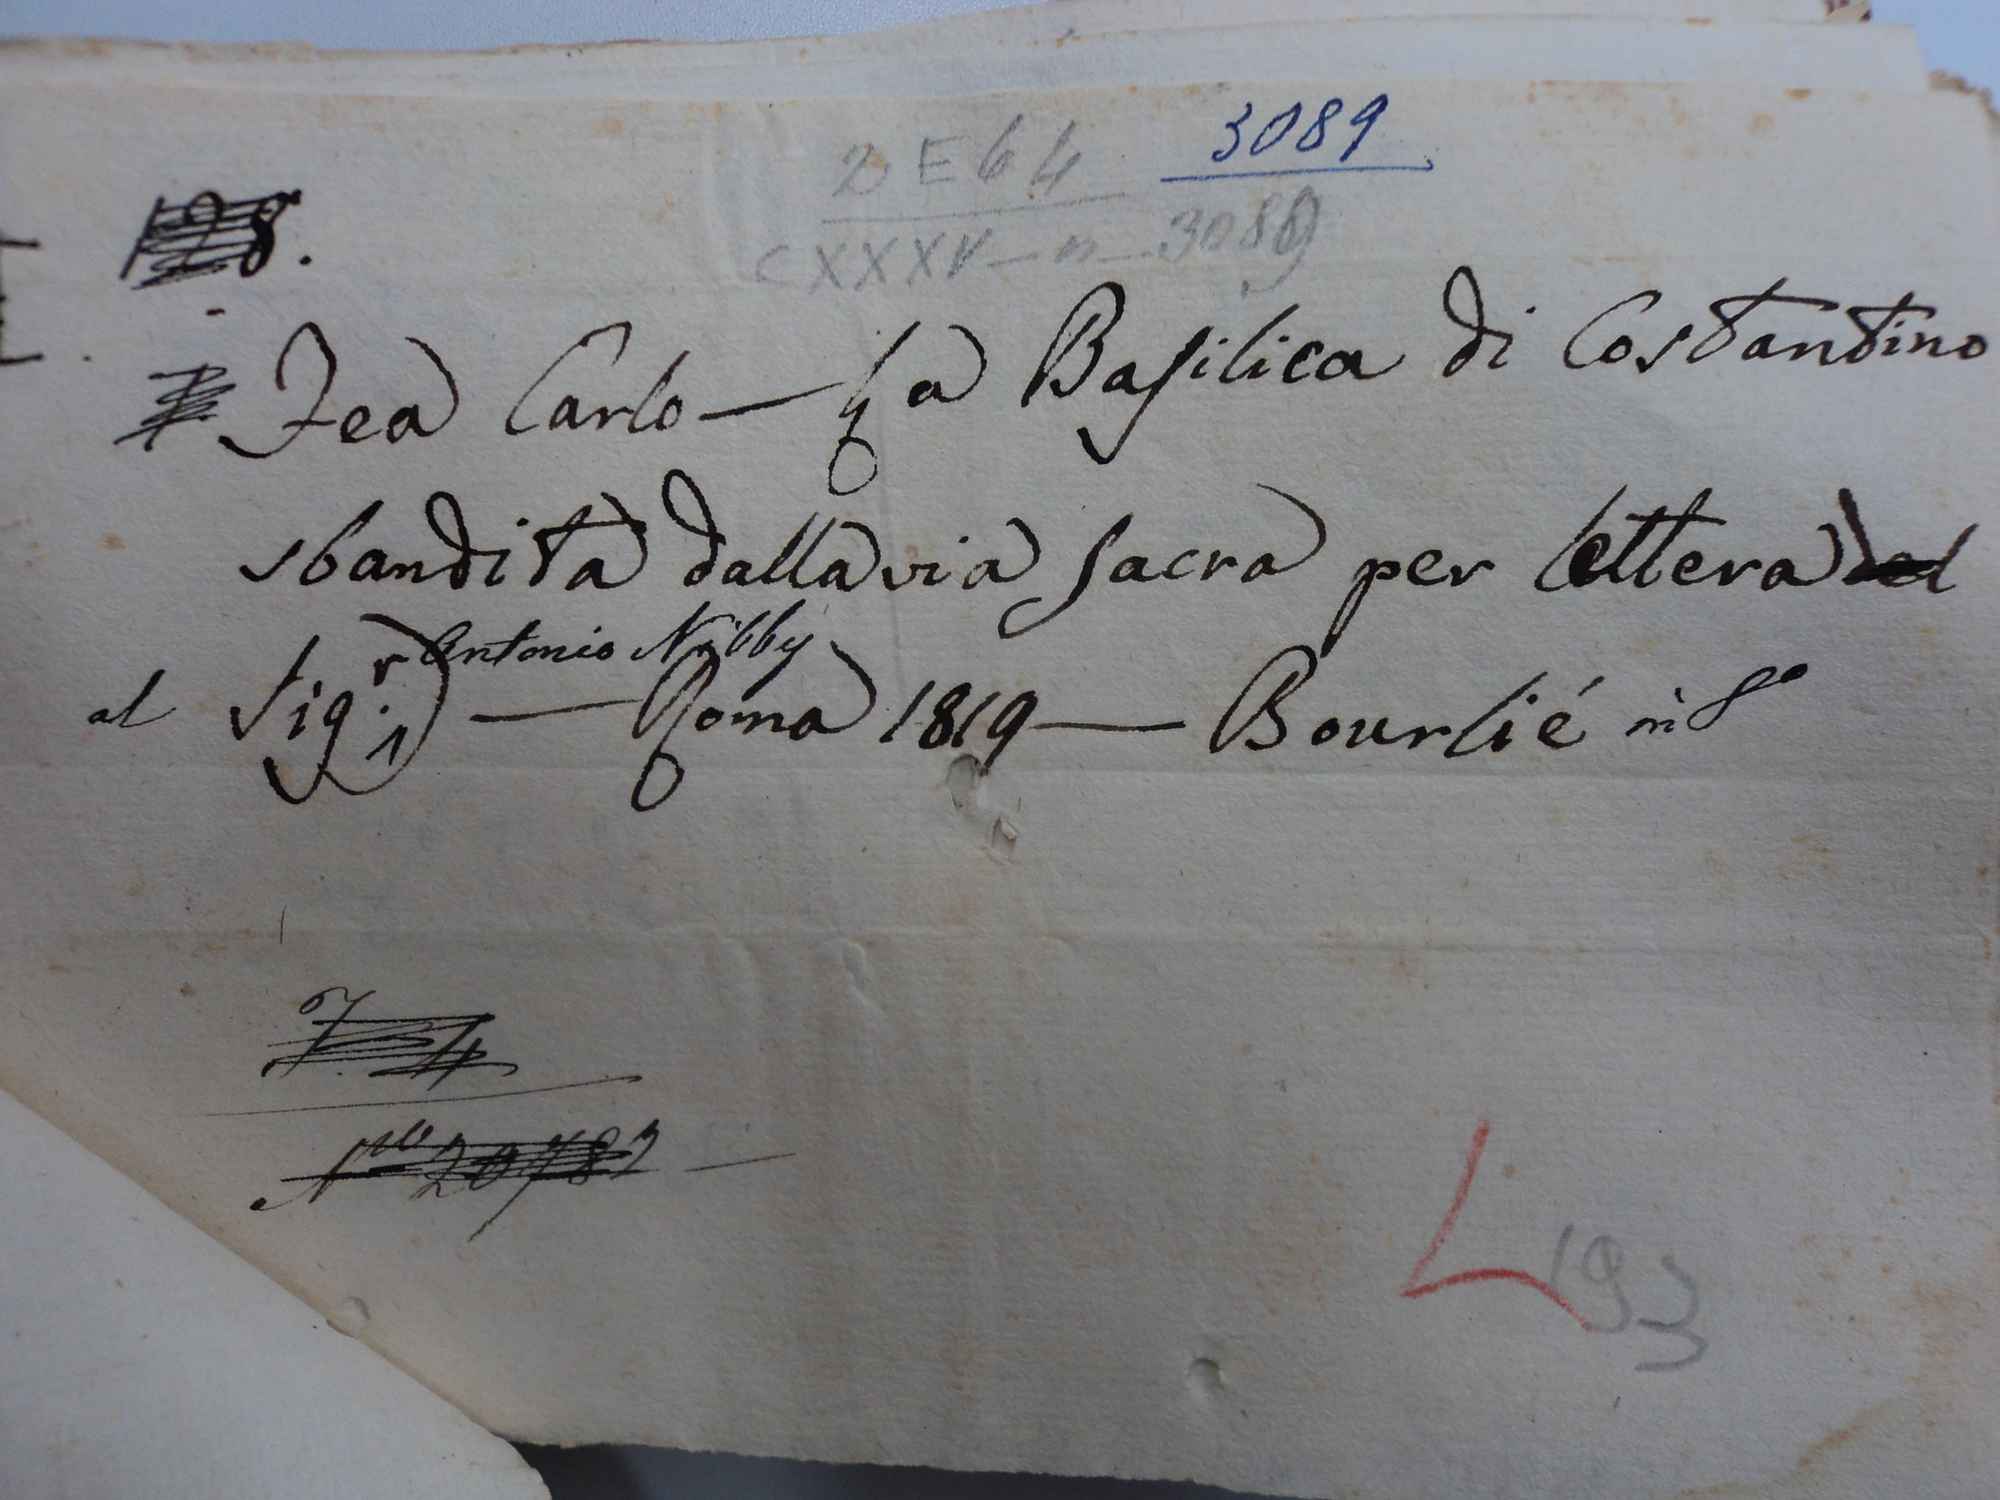 3089
2 E 64
CXXXV - n - 3089
128.
Fea Carlo — La Basilica di Costantino
sbandita dalla via sacra per lettera
Antonio Nibby
al Sigr. — Roma 1819 — Bourlié in 8º
7. 4
193